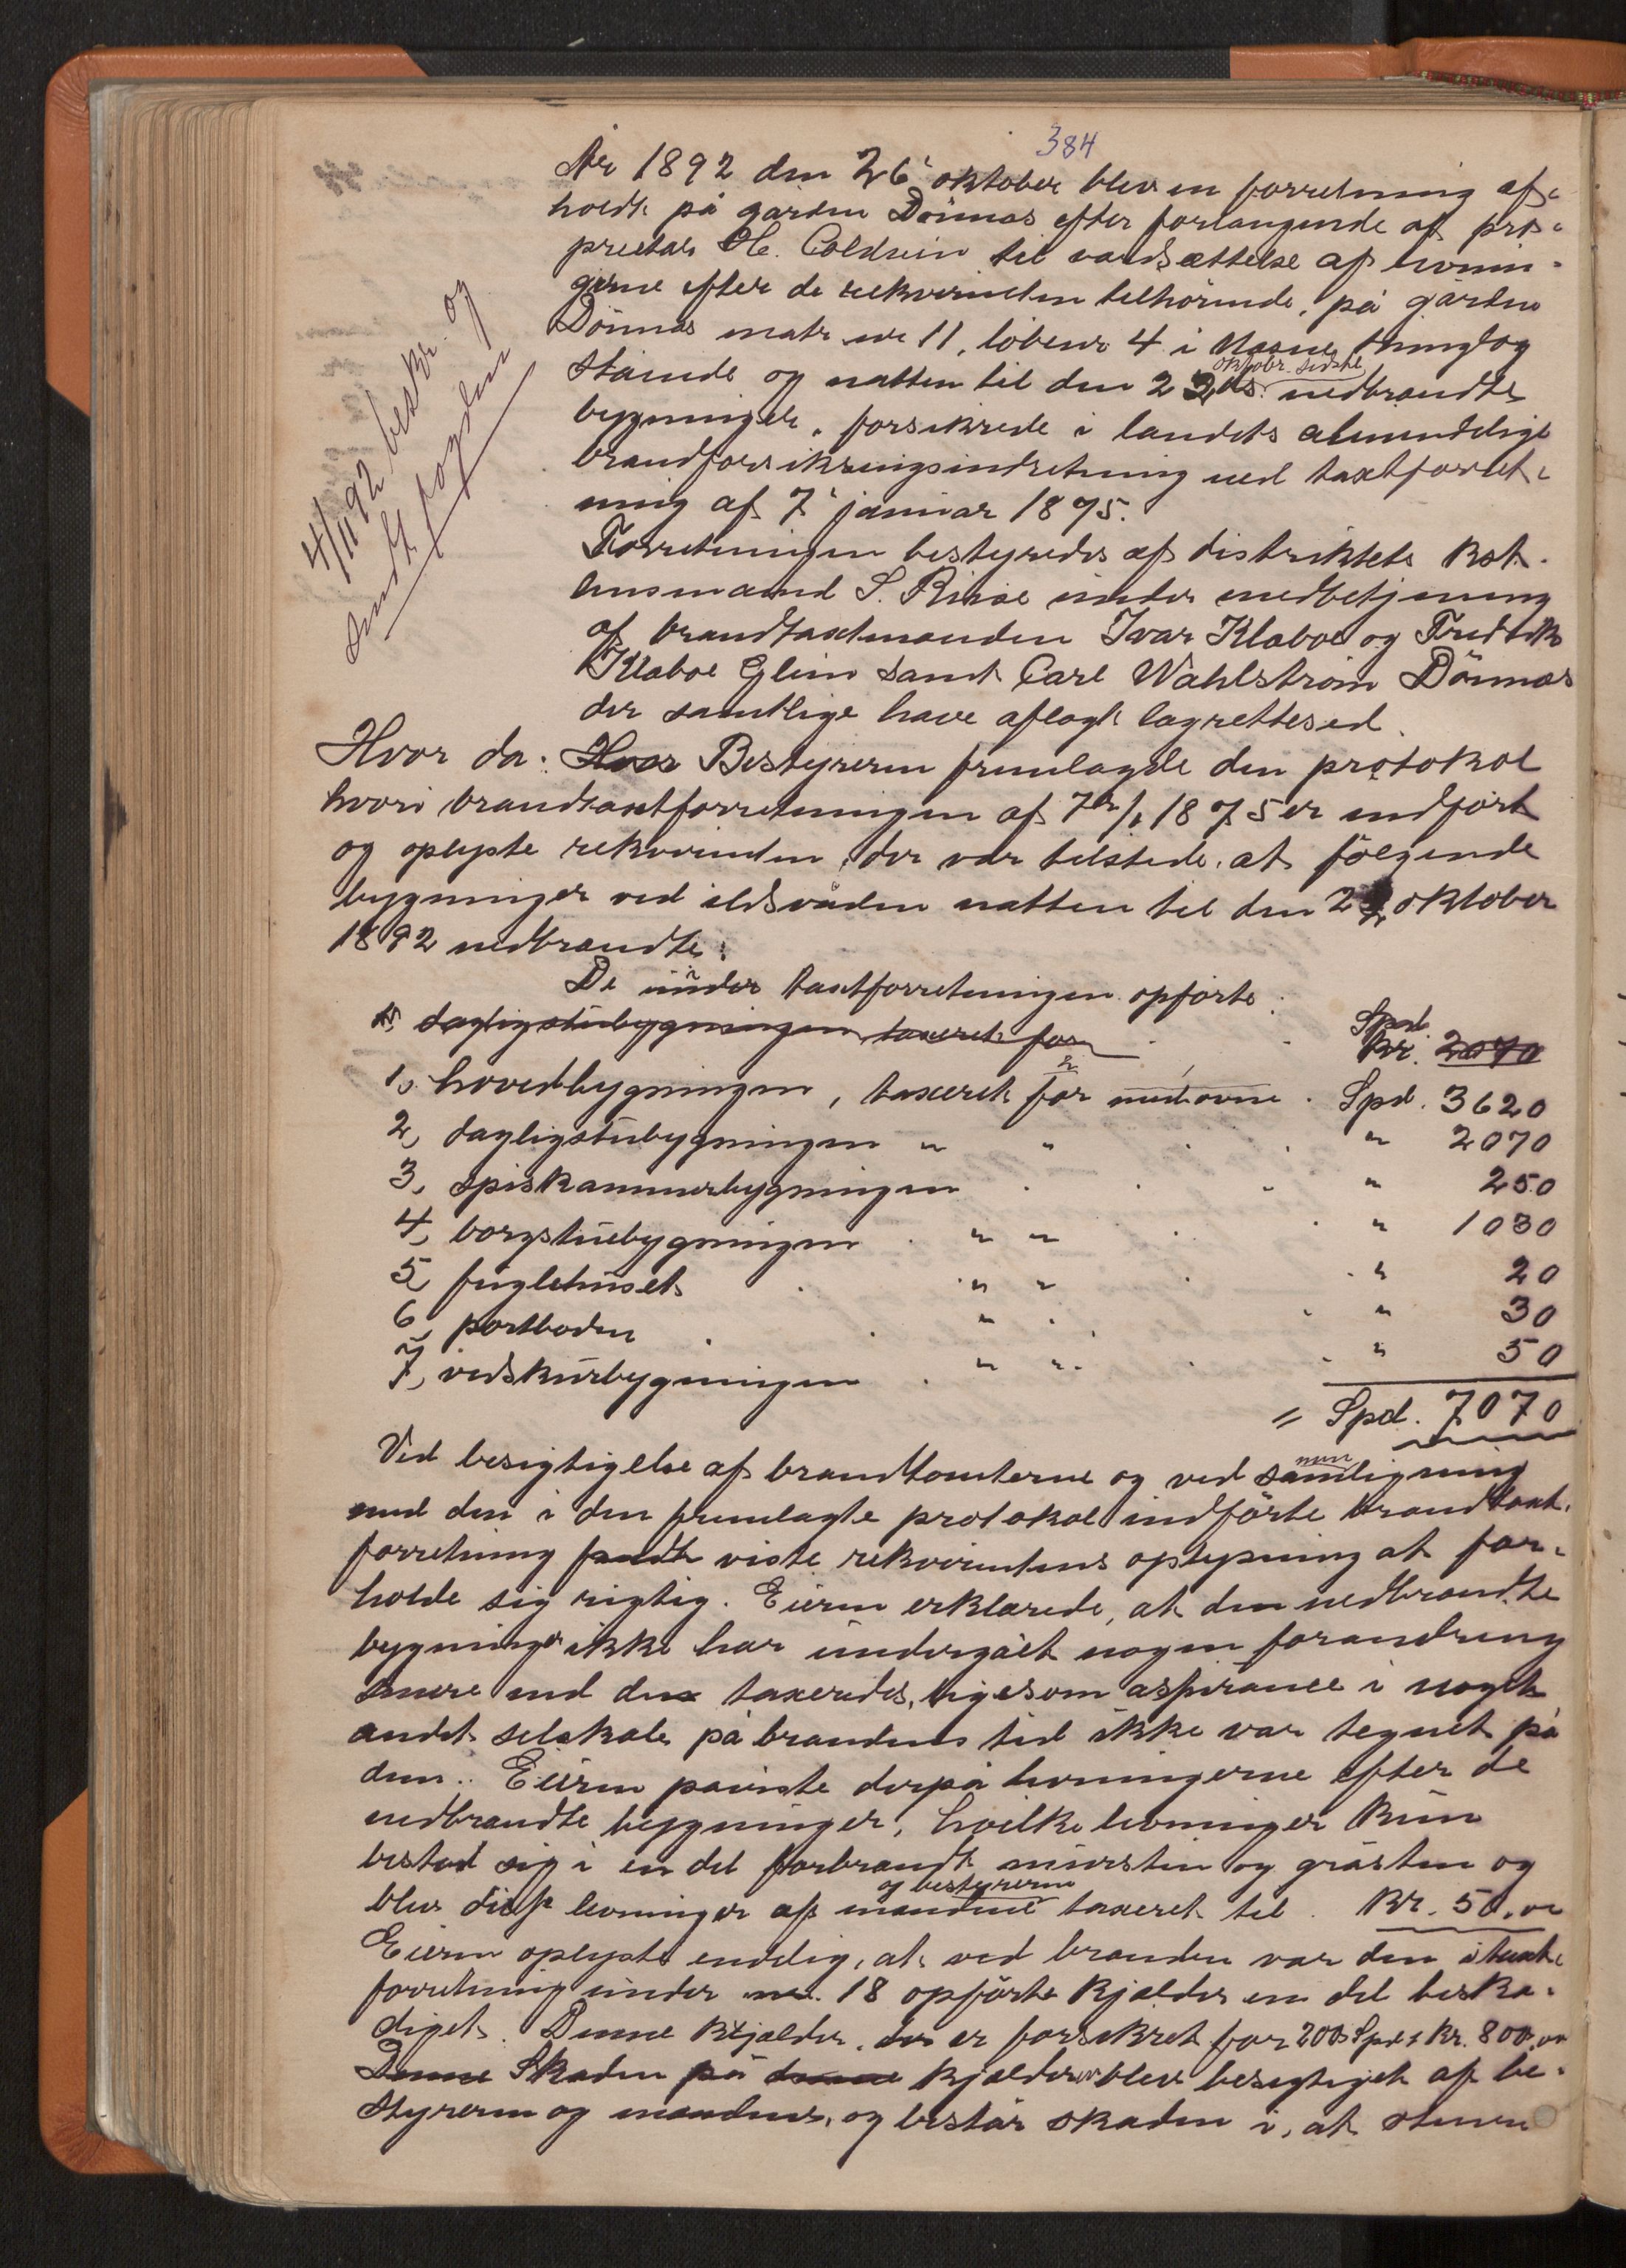 384
År 1892 den 26' oktober blev en forretning af-
holdt på gården Dönnes efter forlangende af pro-
prietær H. Coldevin til værdsættelse af levnin-
gerne efter de rekvirenten tilhörende, på gården
Dönnes matr. nr 11, löbenr 4 i Næsne thinglag
stående og natten til den 23 oktobr. sidstl. nedbrændte
bygninger, forsikrede i landets almindelige
brandforsikringsindretning ved taxtforret-
ning af 7' januar 1875.
4/11 92 beskr. og
sendt fogden
Forretningen bestyredes af distriktets kst.
lensmand S. Riise under medbetjening
af brandtaxtmænden Ivar Klæboe og Fredrik
Klæboe Glein samt Carl Wahlström Dönnes
der samtlige have aflagt lagrettesed.
Hvor da: Hvor Bestyreren fremlagde den protokol
hvori brandtaxtforretningen af 7de/1 1875 er indfört
og oplyste rekvirenten, der var tilstede, at fölgende
bygninger ved ildsvåden natten til den 23 oktober
1892 nedbrændte:
De under taxtforretningen opförte:
1, dagligstubygningen taxeret for Spd. Kr. 2070
1, hovedbygningen, taxeret for med ovne . Spd. 3620
2, dagligstubygningen " " . . " 2070
3, spiskammerbygningen . . . " 250
4, borgstuebygningen . " " . . " 1030
5, fuglehuset . " " . . " 20
6, portboden . . " . . . " 30
7, vedskurbygningen . " " . . " 50
= Spd. 7070
Ved besigtigelse af brandtomterne og ved sammenligning
med den i den fremlagte protokol indförte brandtaxt-
forretning fandt viste rekvirentens oplysning at for-
holde sig rigtig. Eieren erklærede, at den nedbrændte
bygninger ikke har undergået nogen forandring
senere end den taxeredes, ligesom assurance i noget
andet selskab på brandens tid ikke var tegnet på
dem. Eieren påviste derpå levningerne efter de
nedbrændte bygninger, hvilke levninger kun
bestod sig i en del forbrændt mursten og gråsten og
blev disse levninger af mændene og bestyreren taxeret til . Kr. 50,00
Eieren oplyste endelig, at ved branden var den i taxt-
forretning under no. 18 opförte kjælder en del beska-
diget. Denne kjælder, der er forsikret for 200 Spd = Kr. 800,00
Denne Skaden på denne kjælderen blev besigtiget af be-
styreren og mændene, og består skaden i, at stenen